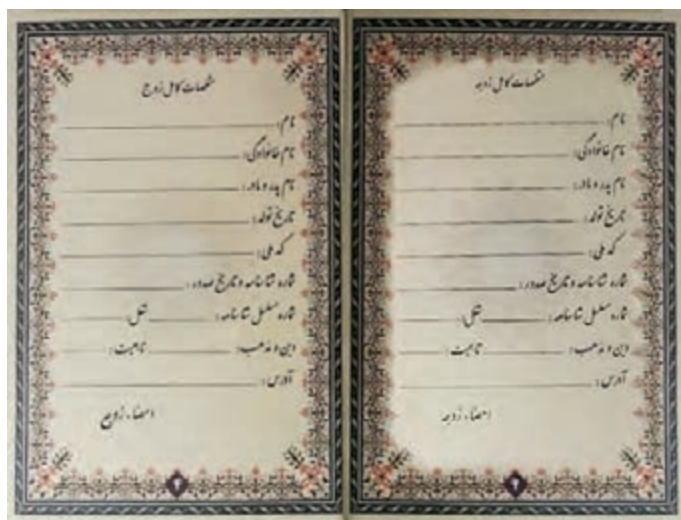 مشخصات کامل زوجه
نام:
نام خانوادگی:
نام پدر و مادر:
تاریخ تولد:
کد ملی:
شماره شناسنامه و تاریخ صدور:
شماره مسلسل شناسنامه: شغل:
دین و مذهب: تابعیت:
آدرس:
امضاء زوجه
مشخصات کامل زوج
نام:
نام خانوادگی:
نام پدر و مادر:
تاریخ تولد:
کد ملی:
شماره شناسنامه و تاریخ صدور:
شماره مسلسل شناسنامه: شغل:
دین و مذهب: تابعیت:
آدرس:
امضاء زوج